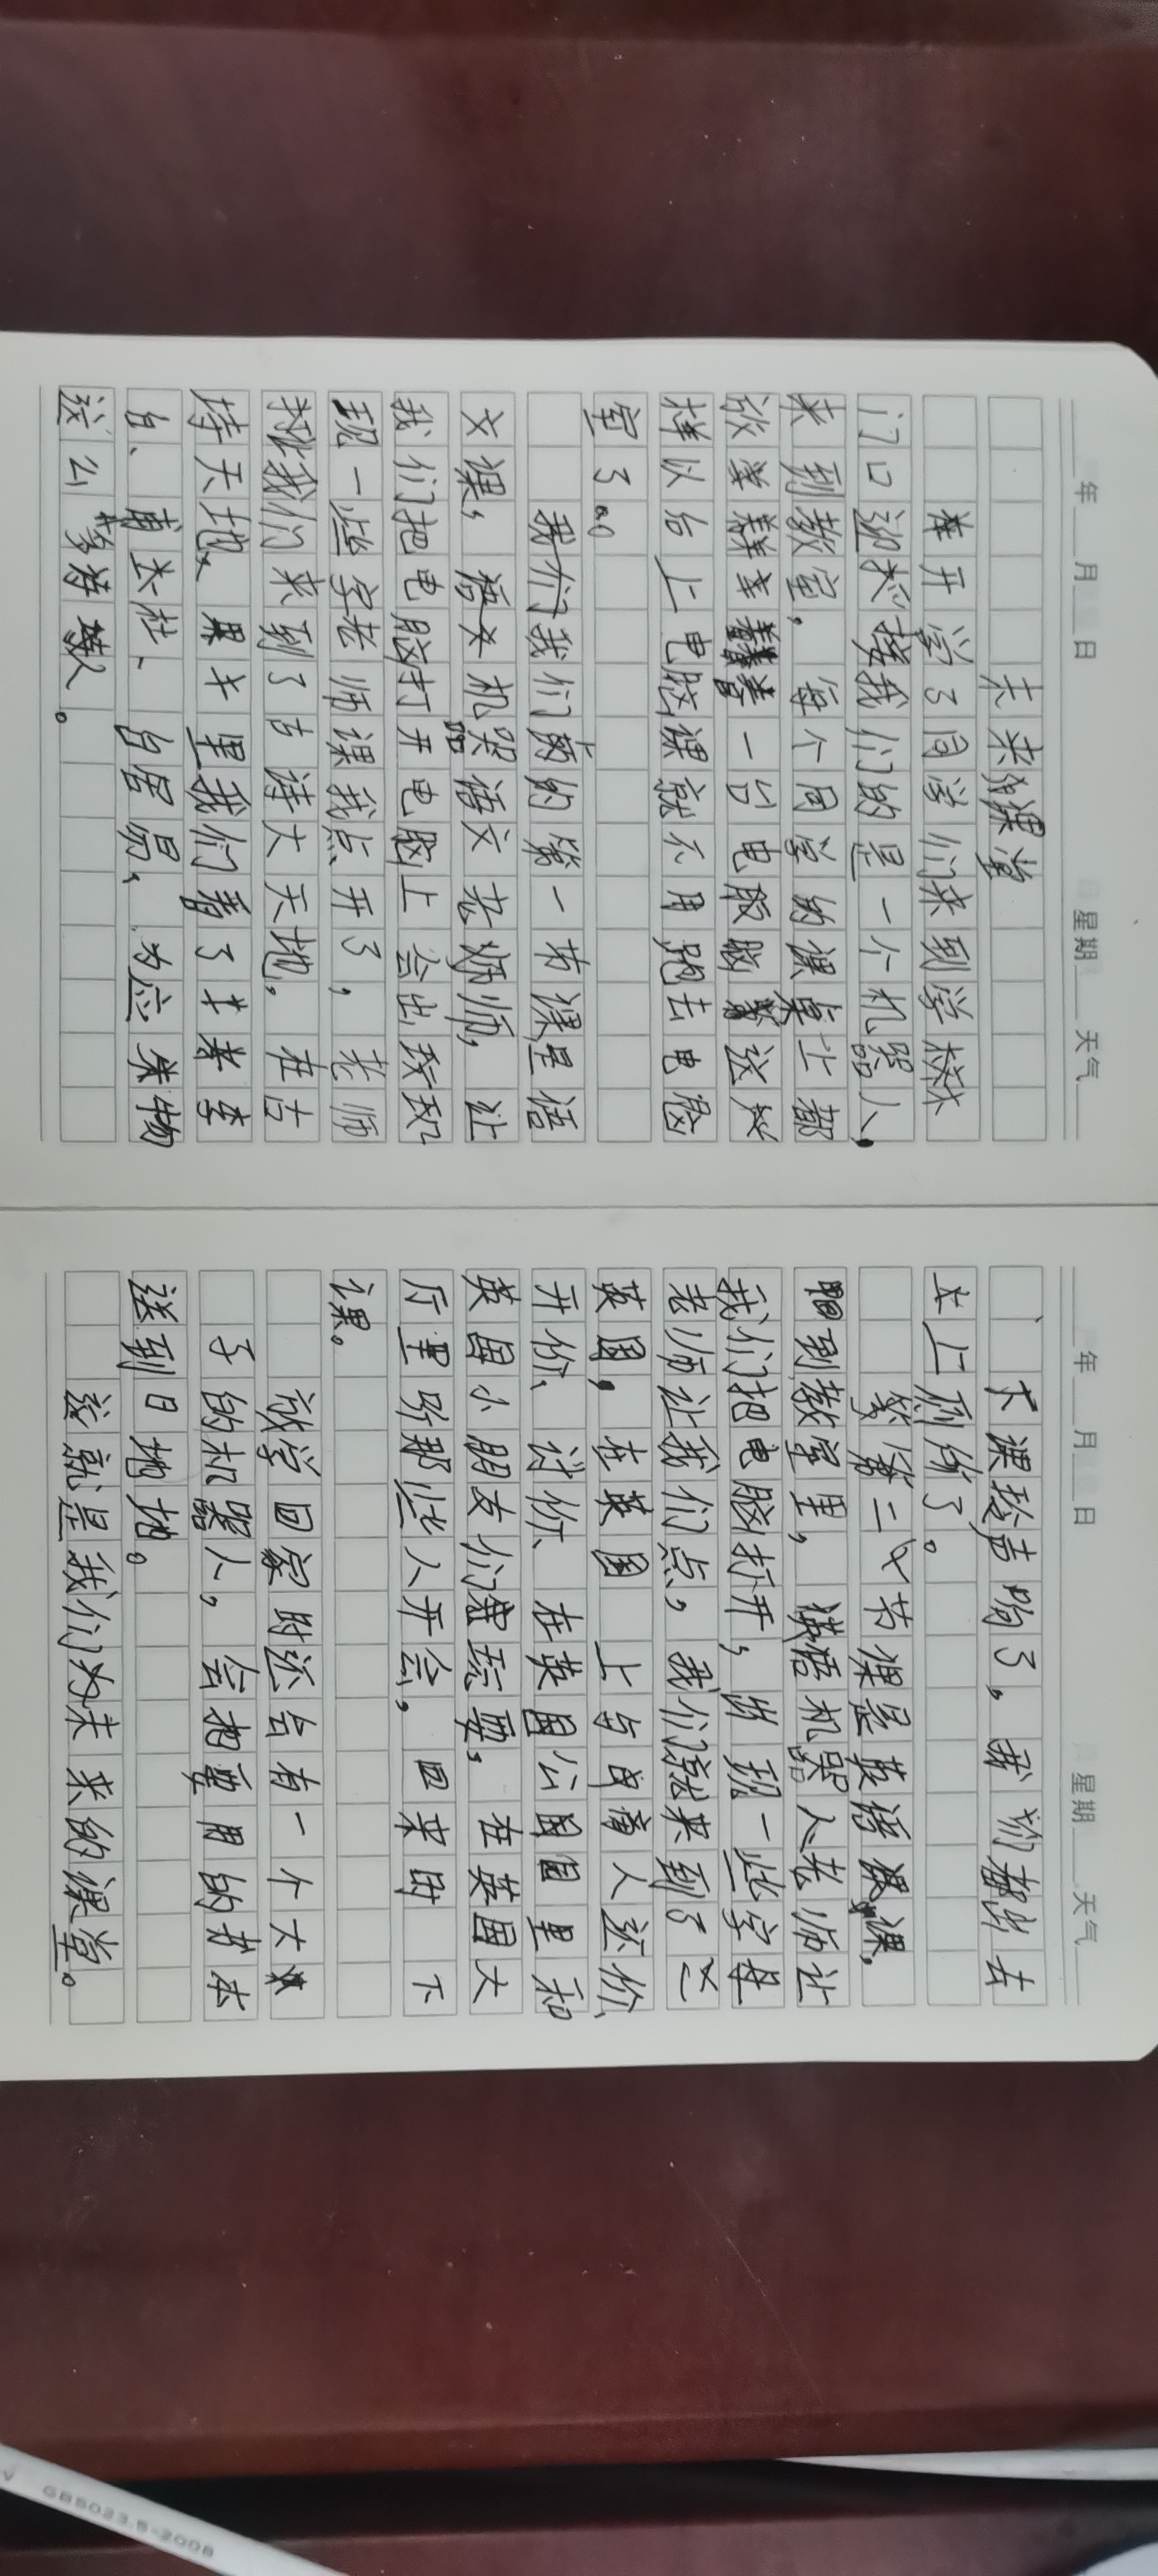 年 月 日 星期 天气
未来的课堂
开学了同学们来到学校
门口迎接我们的是一个机器人,
来到教室,每个同学的课桌上都
放着一台电脑这
样以后上电脑课就不用跑去电脑
室了。
我们的第一节课是语
文课,语文机器语文老师,让
我们把电脑打开电脑上会出
现一些字老师课我点开了,老师
把我们来到了古诗大天地。在古
诗天地里我们看了李
白、甫、杜、白居易,为应朱物
这么
年 月 日 星期 天气
下课玲声响了,我们都出去
上厕所了。
第二节课是英语课,
回到教室里,英语机器人老师让
我们把电脑打开,出现一些字是
老师让我们点,我们就来到了
英国,在英国上与商人还价、
开价、讨价、在英国公园里和
英国小朋友们玩耍,在英国大
厅里听那些人开会,回来时下
课。
放学回家时还台有一个大
子的机器人,会把要用的书本
送到目地地。
这就是我们为未来的课堂。
GB5023.5-2008